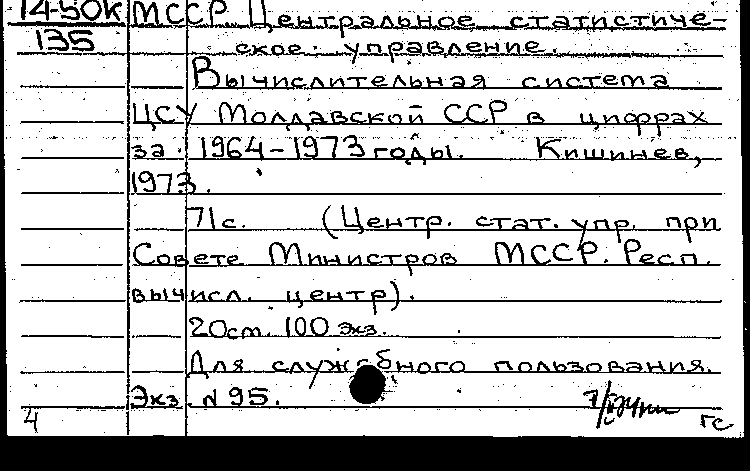 14-50К МССР Центральное статистиче-
135 ское управление.
Вычислительная система
ЦСУ Молдавской ССР в цифрах
за 1964-1973 годы. Кишинев,
1973.
71с. (Центр. стат. упр. при
Совете Министров МССР. Респ.
вычисл. центр).
20см. 100 экз.
Для служебного пользования.
Экз. N 95.
4 гс